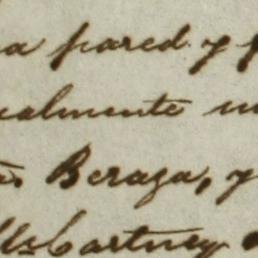 a pared y
almente
Beraza, y
McCartney